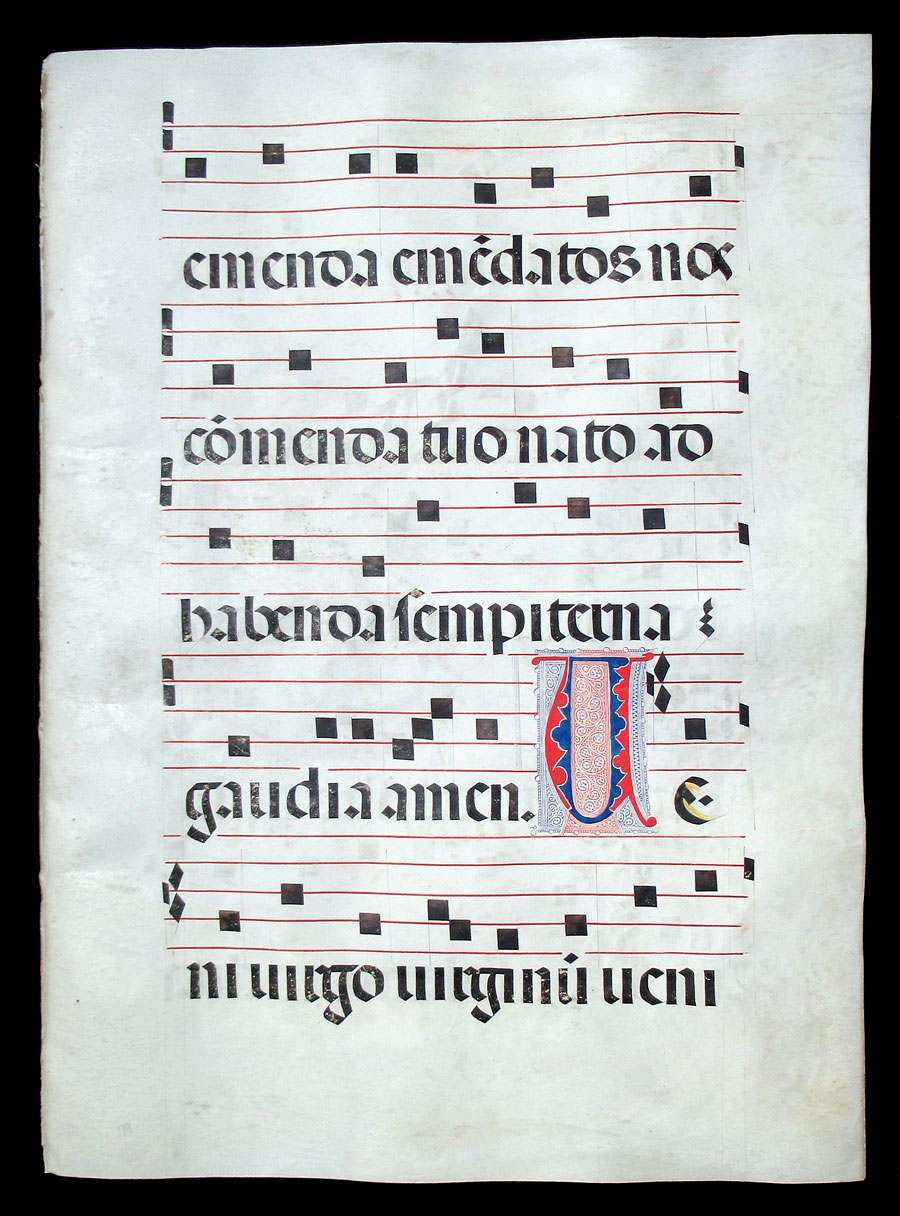 emenda emēdatos nos
cōmenda tuo nato ad
habenda sempiterna
gaudia amen. U E
ni uirgo uirginū ueni